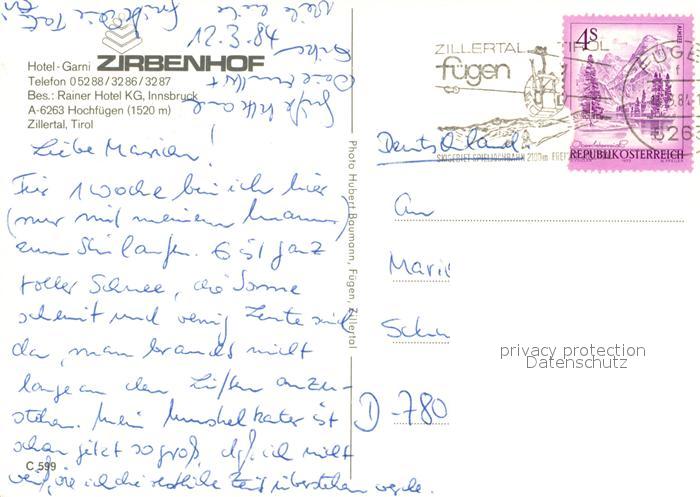 12.3.84
Hotel - Garni ZIRBENHOF
Telefon 0 52 88 / 32 86 / 32 87
Bes.: Rainer Hotel KG, Innsbruck
A-6263 Hochfügen (1520 m)
Zillertal, Tirol
Liebe Marion!
Für 1 Woche bin ich hier
(nur mit meinem Mann)
zum Skilaufen. Es ist ganz
toller Schnee, die Sonne
scheint und wenig Leute sind
da, man braucht nicht
lange an den Liften anzu-
stehen. Mein Muskelkater ist
schon jetzt so groß, daß ich nicht
weiß, wie ich die restliche Zeit überstehen werde.
C 599
Photo Hubert Baumann, Fügen, Zillertal
ZILLERTAL TIROL
fügen
4S
REPUBLIK ÖSTERREICH
Deutschland
An
D-780
privacy protection
Datenschutz